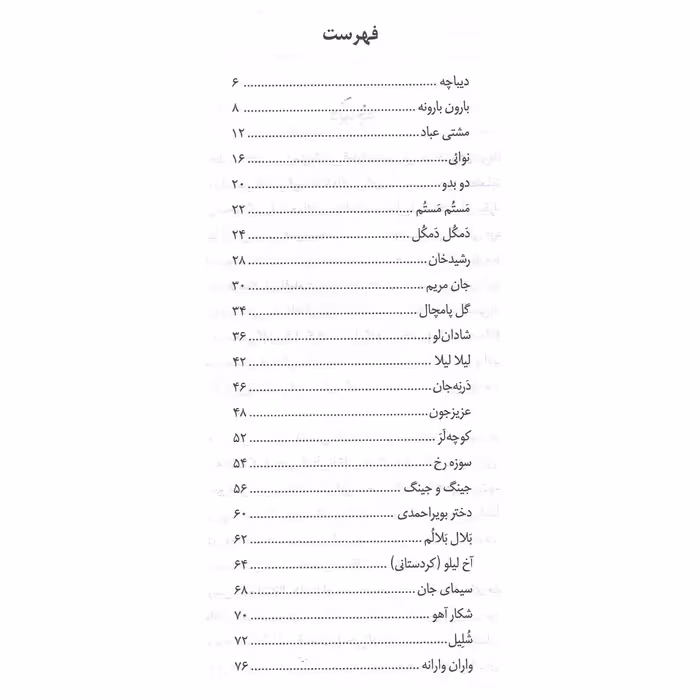 فهرست
دیباچه ........................................ ۶
بارون بارونه ........................................ ۸
مشتی عباد ........................................ ۱۲
نوائی ........................................ ۱۶
دو بدو ........................................ ۲۰
مَستُم مَستُم ........................................ ۲۲
دَمکُل دَمکُل ........................................ ۲۴
رشیدخان ........................................ ۲۸
جان مریم ........................................ ۳۰
گل پامچال ........................................ ۳۴
شادان‌لو ........................................ ۳۶
لیلا لیلا ........................................ ۴۲
دَرنِه‌جان ........................................ ۴۶
عزیزجون ........................................ ۴۸
کوچه‌لَرَ ........................................ ۵۲
سوزه رخ ........................................ ۵۴
جینگ و جینگ ........................................ ۵۶
دختر بویراحمدی ........................................ ۶۰
بَلال بَلالُم ........................................ ۶۲
آخ لیلو (کردستانی) ........................................ ۶۴
سیمای جان ........................................ ۶۸
شکار آهو ........................................ ۷۰
شُلِیل ........................................ ۷۲
واران وارانه ........................................ ۷۶